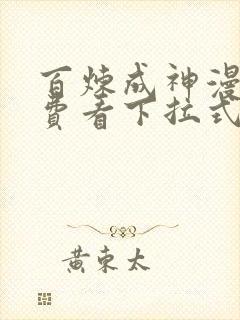 百炼成神漫
费看下拉式
黄东太